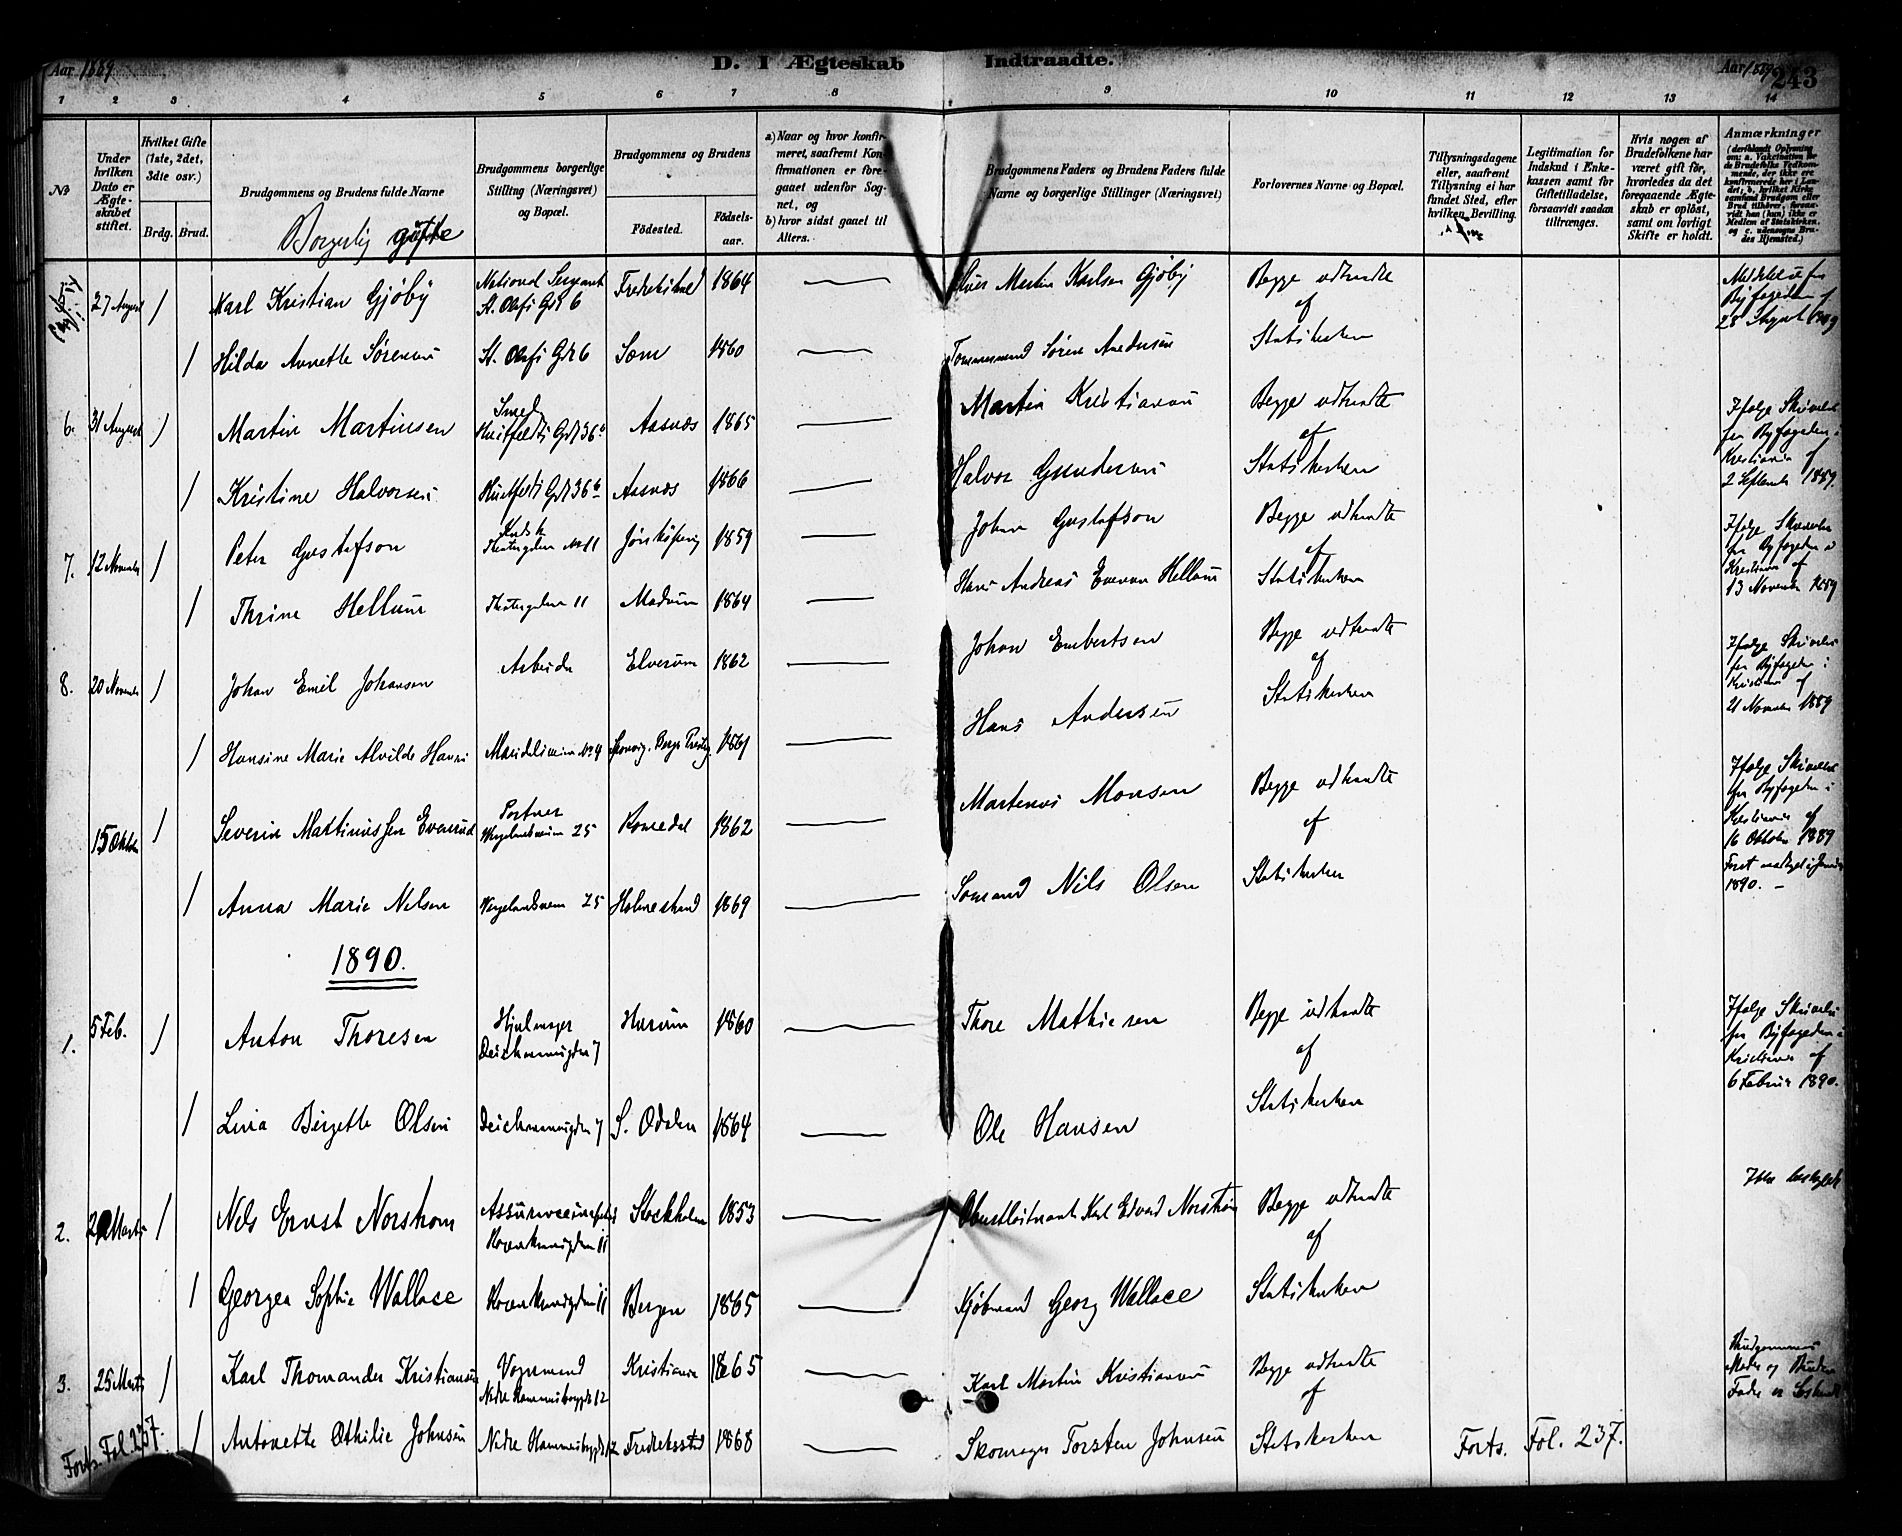 Aar 1889
D. I Ægteskab Indtraadte.
Aar 1889
243
1 2 3 4 5 6 7 8 9 10 11 12 13 14
No
Under hvilken Dato er Ægteskabet stiftet.
Hvilket Gifte (1ste, 2det, 3die osv.)
Brdg. Brud.
Brudgommens og Brudens fulde Navne
Brudgommens borgerlige Stilling (Næringsvei) og Bopæl.
Brudgommens og Brudens
Fødested.
Fødselsaar.
a) Naar og hvor konfirmeret, saafremt Konfirmationen er foregaaet udenfor Sognet, og
b) hvor sidst gaaet til Alters.
Brudgommens Faders og Brudens Faders fulde Navne og borgerlige Stillinger (Næringsvei)
Forlovernes Navne og Bopæl.
Tillysningsdagene eller, saafremt Tillysning ei har fundet Sted, efter hvilken Bevilling.
Legitimation for Indskud i Enkekassen samt for Giftetilladelse, forsaavidt saadan tiltrænges.
Hvis nogen af Brudefolkene har været gift før, hvorledes da det foregaaende Ægteskab er opløst, samt om lovligt Skifte er holdt.
Anmærkninger
Borgerlig gifte
27 August / Karl Kristian Gjøby St. Olafs Gd 6 Fredrikshald 1864 — Martin Karlsen Gjøby Begge udtraadte af
28 August 1889
/ Hilda Annette Sørensen St. Olafs Gd 6 1860 — Tømmermand Søren Andersen Statskirken
6. 31 August / Martin Martinsen Smed Huitfeldts Gd 36 b Aasnes 1865 — Martin Kristiansen Begge udtraadte af
Ifølge Skrivelse fra Byfogeden i Kristiania af 2 September 1889.
/ Kristine Halvorsen Huitfeldts Gd 36 b Aasnes 1866 — Halvor Gundersen Statskirken
7. 12 November / Peter Gustafson Kusk Theatergaden No 11 Jönköping 1859 — Johan Gustafson Begge udtraadte af
Ifølge Skrivelse fra Byfogeden i Kristiania af 13 November 1889
/ Thrine Hellum Theatergaden 11 1864 — Hans Andreas Hellum Statskirken
8. 20 November / Johan Emil Johansen Arbeider Elverum 1862 — Johan Embertsen Begge udtraadte af
Ifølge Skrivelse fra Byfogeden i Kristiania af 21 November 1889
/ Hansine Marie Alvilde Hansen No 4 1861 — Hans Andersen Statskirken
15 Oktober / Severin Martinussen Evenrud Portner Wergelandsveien 25 Romedal 1862 — Martinus Monsen Begge udtraadte af
Ifølge Skrivelse fra Byfogeden i Kristiania af 16 Oktober 1889
1890. —
/ Anna Marie Nilsen Wergelandsveien 25 Holmestrand 1869 — Sømand Nils Olsen Statskirken
1890.
1. 5 Feb. / Anton Thoresen Hjulmager Deichmannsgden 7 Hurum 1860 — Thore Mathisen Begge udtraadte af
Ifølge Skrivelse fra Byfogeden i Kristiania af 6 Februar 1890.
/ Lina Birgette Olsen Deichmannsgden 7 S. Odalen 1864 — Ole Hansen Statskirken
2. Marts / Nils Ernst Norstrøm Rosenkransgden 11 Stockholm 1853 — Oberstløitnant Karl Edvard Norstrøm Begge udtraadte af
/ Georgea Sophie Wallace Rosenkransgden 11 Bergen 1865 — Kjøbmand Georg Wallace Statskirken
3. 25 Marts / Karl Thomander Kristiansen Vognmand Nedre 12 Kristiania 1865 — Karl Martin Kristiansen Begge udtraadte af
Brudgommens Moder og Brudens Fader er Søskende
/ Antonette Othilie Johnsen Nedre 12 Fredriksstad 1868 — Skomager Torsten Johnsen Statskirken
Forts. Fol. 237.
Forts. Fol. 237.